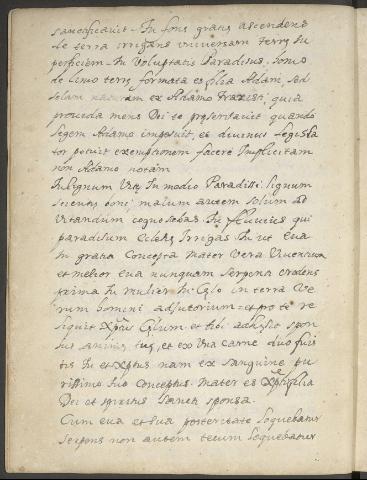 sanctificavit. Tu fons gratiæ ascendens
de terra irrigans universam terræ su
perficiem. Tu voluptatis Paradisus. homo
de limo terræ formata es filia Adam, sed
solam naturam ex Adamo traxisti, quia
provida mens Dei te præservavit quando
legem Adamo imposuit, et divinus legisla
tor potuit exemptionem facere implicitam
non Adamo notam
Tu lignum vitæ in medio Paradisi: lignum
scientiæ boni, malum autem solum ad
vitandum cognoscebas. Tu fluvius qui
paradisum irrigas. Tu ut Eva
in gratia concepta Mater vera viventium
et melior Eva nunquam serpenti credens
prima tu mulier in in terra ve
rum homini adjutorium: et pro te re
liquit Xptus Cælum et tibi adhæsit spon
sus tuus, et ex una carne duo fuis
tis tu et Xptus nam ex sanguine pu
rissimo tuo conceptus. Mater es Xpti filia
Dei et spiritus sancti sponsa.
Cum Eva et sua posteritate loquebatur
serpens non autem tecum loquebatur